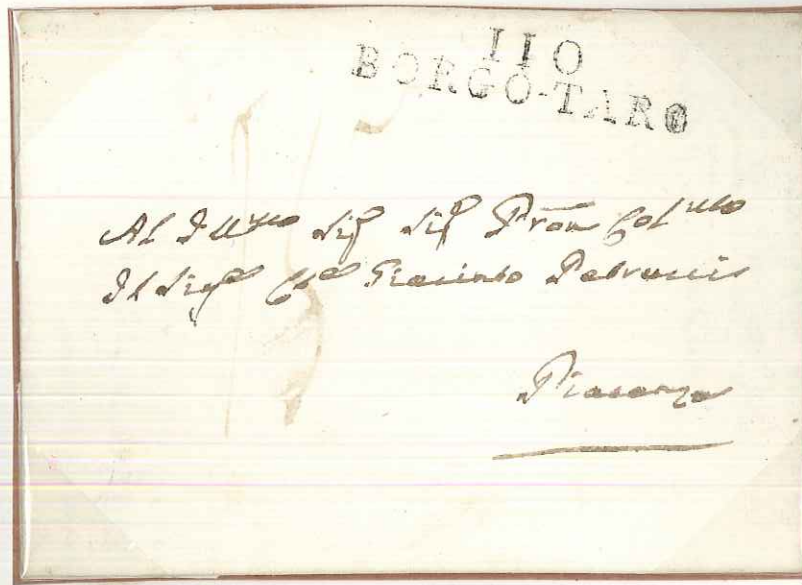 110
BORGO-TARO
Al Ill.mo Sig.r Sig.r Pron Col.mo
Il Sig.r Giacinto Petrucci
Piacenza